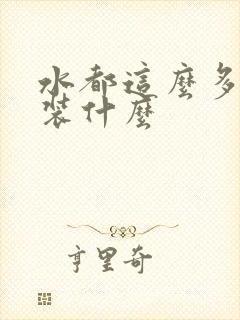 水都這麼多
裝什麼
亨里奇